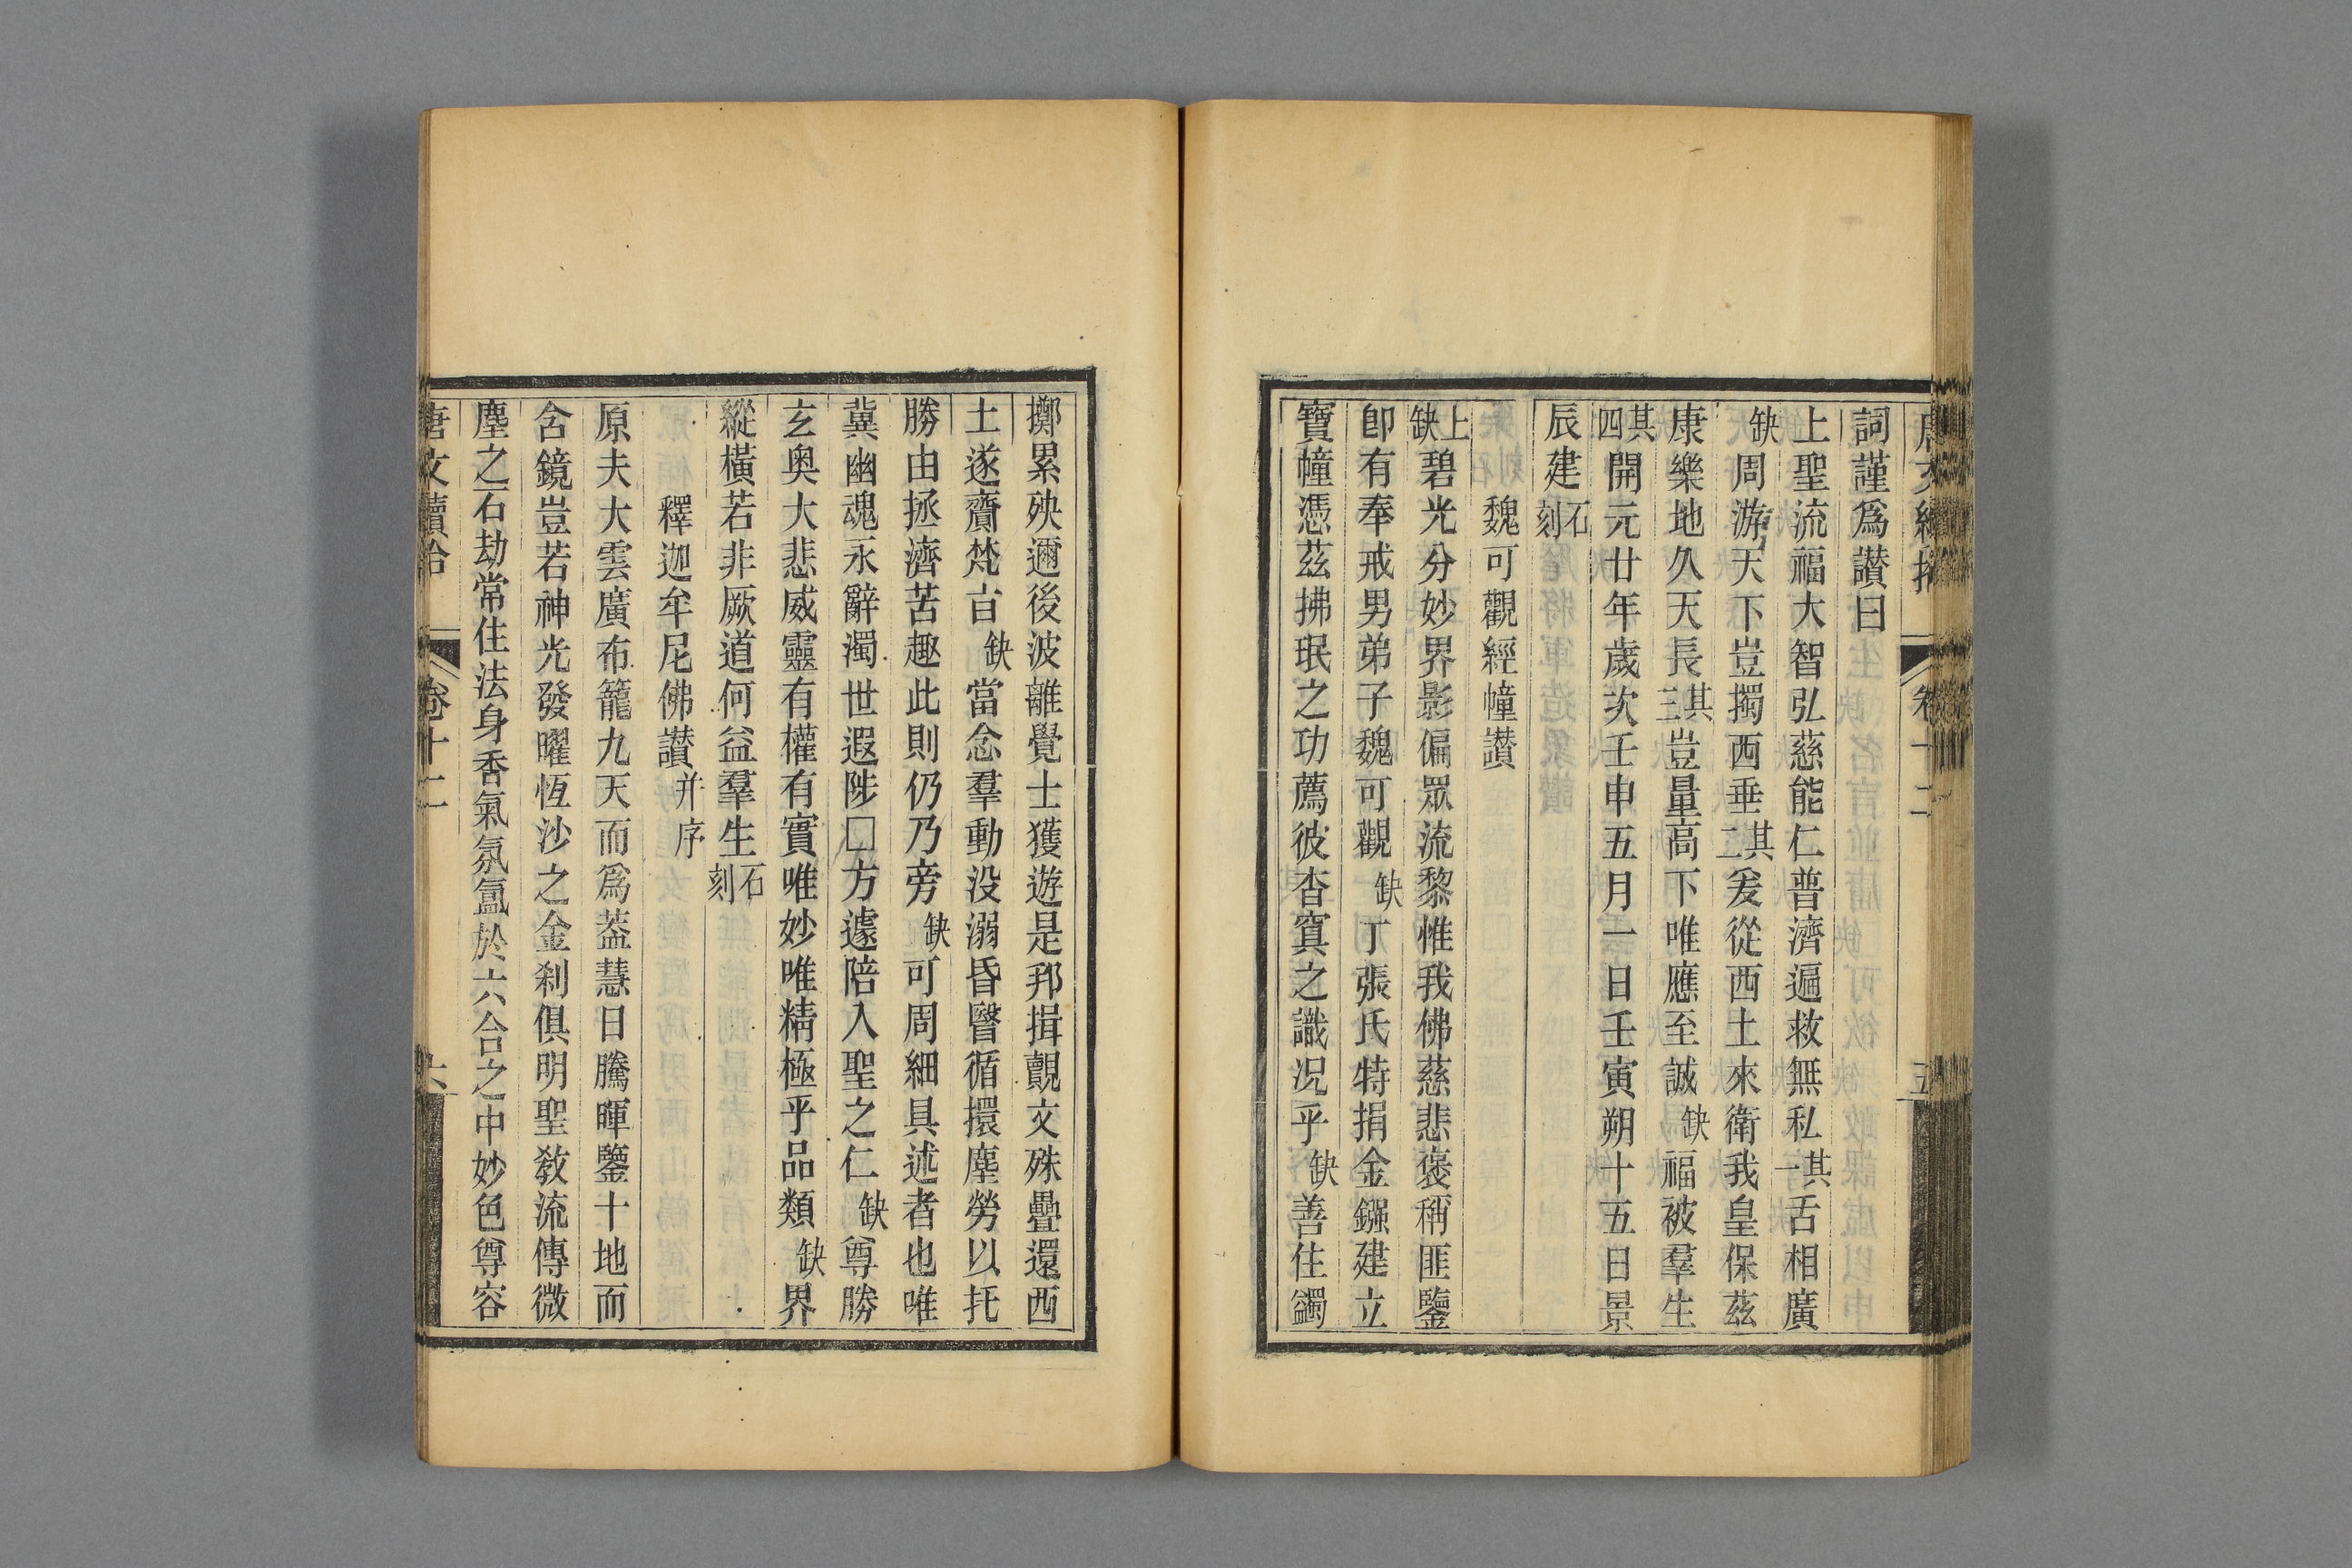 詞謹爲讃曰
上聖流福大智弘慈能仁普濟遍救無私其一舌相廣
缺周游天下豈獨西垂其二爰從西土來衛我皇保茲
康樂地久天長其三豈量高下唯應至誠缺福被羣生
其四開元廿年歲次壬申五月一日壬寅朔十五日景
辰建石刻
魏可觀經幢讃
上缺碧光分妙界影偏眾流黎惟我佛慈悲褒稱匪鑒
卽有奉戒男弟子魏可觀缺丁張氏特捐金鏹建立
寶幢憑茲拂珉之功薦彼杳寘之識况乎缺善住蠲
擲累殃邇後波離覺士獲遊是邦揖覿文殊疊還西
土遂齎梵㫖缺當念羣動没溺昏翳循擐塵勞以托
勝由拯濟苦趣此則仍乃旁缺可周細具述者也唯
冀幽魂永辭濁世遐陟□方遽陪入聖之仁缺尊勝
玄奥大悲威靈有權有實唯妙唯精極乎品類缺界
縱橫若非厥道何益羣生石刻
釋迦牟尼佛讃并序
原夫大雲廣布籠九天而爲葢慧日騰暉鑒十地而
含鏡豈若神光發曜恆沙之金剎俱明聖敎流傳微
塵之石劫常住法身香氣氛氳於六合之中妙色尊容
唐文續拾
卷十二
六